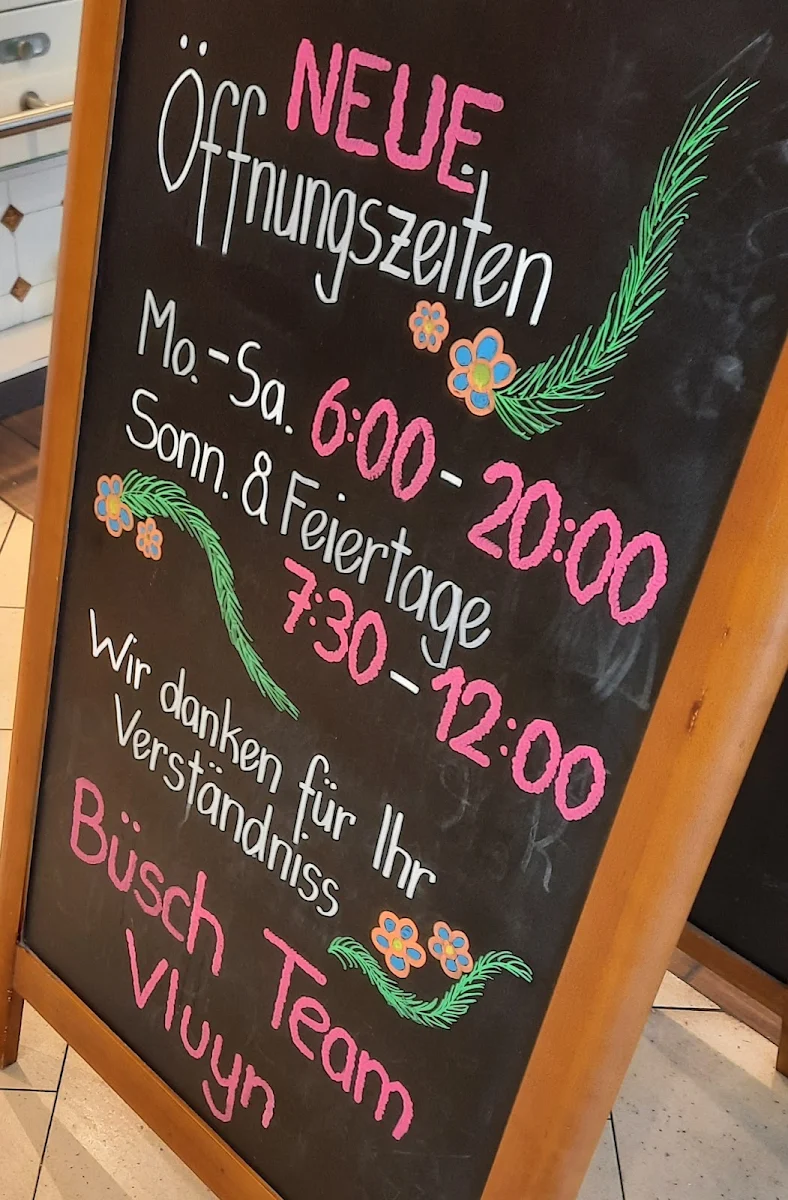 NEUE
Öffnungszeiten
Mo.-Sa. 6:00-20:00
Sonn. & Feiertage
7:30-12:00
Wir danken für Ihr
Verständniss
Büsch Team
Vluyn